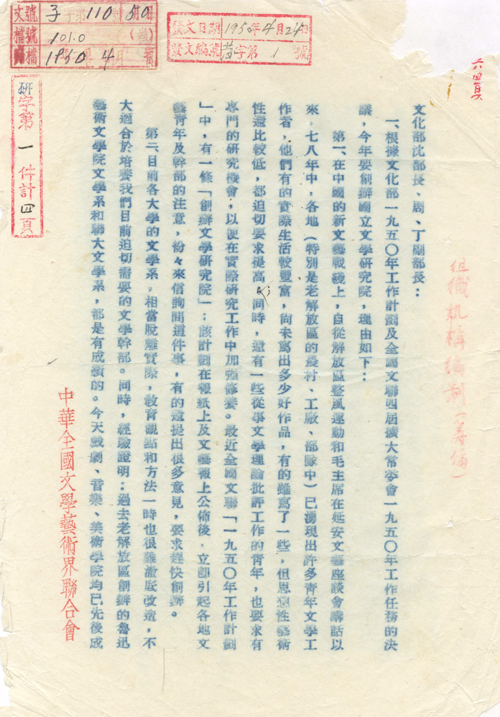 文號 子字第110號 50年
檔號 101.0
歸檔 1950年4月
發文日期 1950年4月24日
發文編號 普字第1號
研字第一件計四頁
六.四頁
組織机構編制（籌備）
文化部沈部長、周、丁副部長：
一、根據文化部一九五〇年工作計劃及全國文聯四屆擴大常委會一九五〇年工作任務的決
議，今年要創辦國立文學研究院，理由如下：
第一、在中國的新文藝戰綫上，自從解放區整風運動和毛主席在延安文藝座談會講話以
來，七八年中，各地（特別是老解放區的農村、工廠、部隊中）已湧現出許多青年文學工
作者，他們有的實際生活較豐富，尚未寫出多少好作品，有的雖寫了一些，但思想性藝術
性還比較低，都迫切要求提高。同時，還有一些從事文學理論批評工作的青年，也要求有
專門的研究機會，以便在實際研究工作中加強修養。最近全國文聯「一九五〇年工作計劃
」中，有一條「創辦文學研究院」；該計劃在報紙上及文藝報上公佈後，立即引起各地文
藝青年及幹部的注意，紛々來信詢問這件事，有的還提出很多意見，要求趕快創辦。
第二、目前各大學的文學系，相當脫離實際，教育觀點和方法一時也很難澈底改造，不
大適合於培養我們目前迫切需要的文學幹部。同時，經驗證明：過去老解放區創辦的魯迅
藝術文學院文學系和聯大文學系，都是有成績的。今天戲劇、音樂、美術學院均已先後成
中華全國文學藝術界聯合會